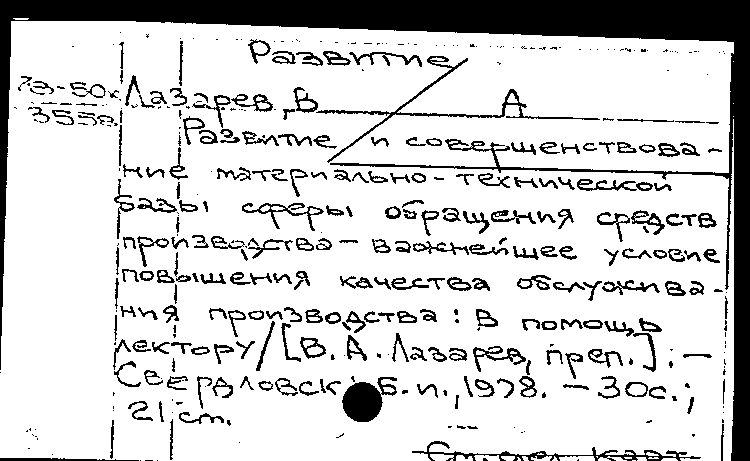 Развитие
Лазарев, В А
355
Развитие и совершенствова-
ние материально-технической
базы сферы обращения средств
производства – важнейшее условие
повышения качества обслужива-
ния производства: В помощь
лектору / [В. А. Лазарев, преп.]. –
Свердловск: Б. и., 1978. – 30с.;
21 см.
См. след. карт.